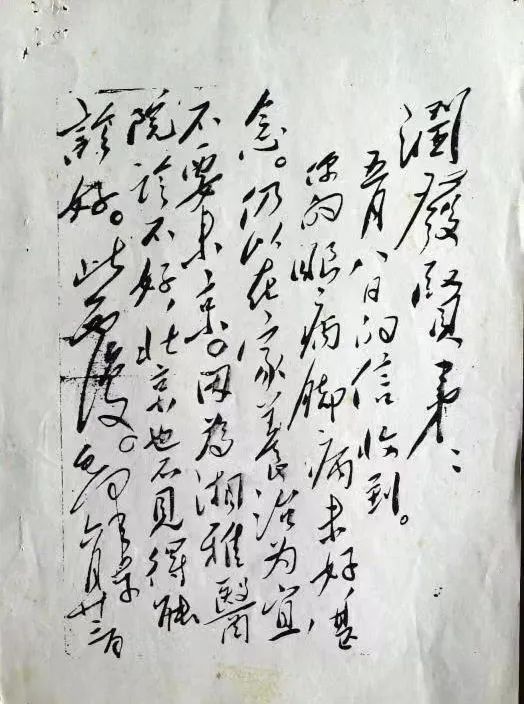 潤發賢弟：
五月八日的信收到。
你的眼病脚病未好，甚
念。仍以在家養治为宜，
不要来京。因為湘雅醫
院診不好，北京也不見得能
診好。此覆。毛澤东
六月廿二日